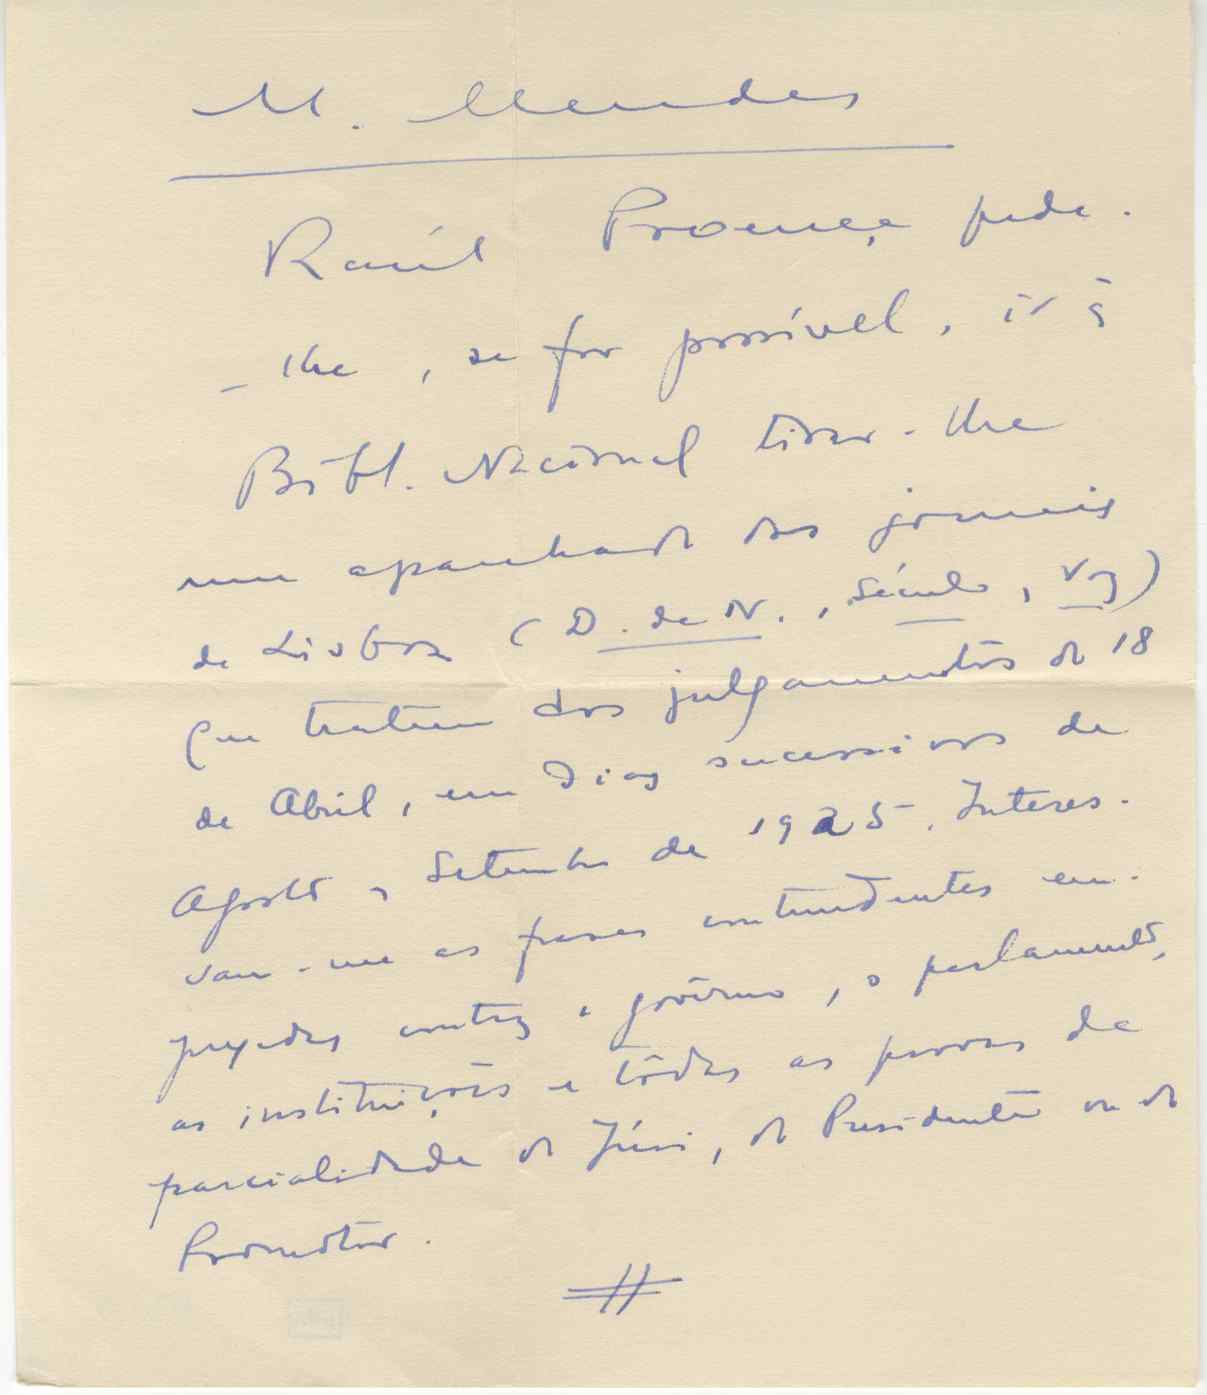 M. Mendes
Raúl Proença pede-
-lhe, se for possível, ir à
Bibl. Nacional tirar-lhe
um apanhado dos jornais
de Lisboa (D. de N., Século, Voz)
que tratem dos julgamentos do 18
de Abril, em dias sucessivos de
Agosto e Setembro de 1925. Interes-
sam-me as frases contundentes em-
pregadas contra o govêrno, o parlamento,
as instituições e tôdas as provas de
parcialidade do Júri, do Presidente ou do
Promotor.